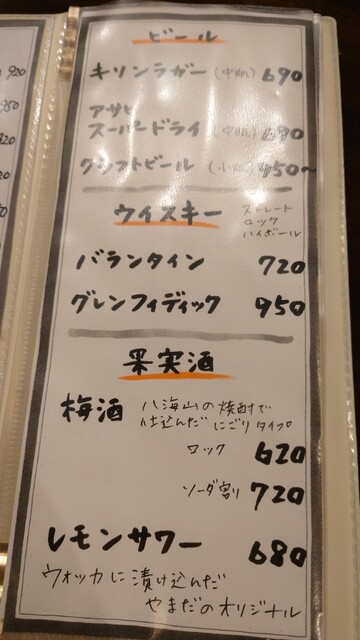 ビール
キリンラガー（中瓶）690
アサヒ
スーパードライ（中瓶）690
クラフトビール（小瓶）850〜
ウイスキー
ストレート
ロック
ハイボール
バランタイン 720
グレンフィディック 950
果実酒
梅酒 八海山の焼酎で
仕込んだ にごりタイプ
ロック 620
ソーダ割り 720
レモンサワー 680
ウォッカに漬け込んだ
やまだのオリジナル
920